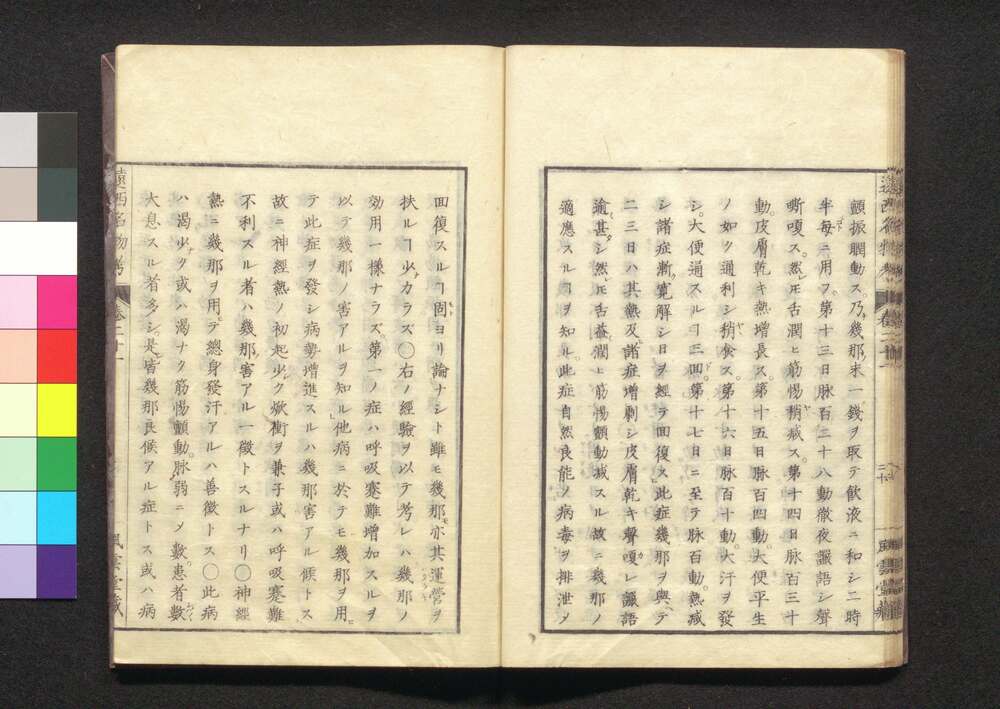 顫振瞤動ス。乃幾那末一錢ヲ取テ飲液ニ和シ二時
半每ニ用フ。第十三日脉百二十八動徹夜譫語シ聲
嘶嗄ス。然𪜈舌潤ヒ筋惕稍減ス。第十四日脉百三十
動。皮膚乾キ熱增長ス。第十五日脉百四動。大便平生
ノ如ク通利シ稍食ス。第十六日脉百十動。大汗ヲ發
シ。大便通スルヿ三四。第十七日ニ至テ脉百動。熱减
シ諸症漸ク寛解シ日ヲ經テ回復ス此症幾那ヲ與ヘテ
二三日ハ其熱及諸症增劇シ皮膚乾キ聲嗄レ譫語
逾甚シ然𪜈舌益潤ヒ筋惕顫動减スル故ニ幾那ノ
適應スルヿヲ知ル。此症自然良能ノ病毒ヲ排泄ノ
二十
風雲堂藏
回復スルヿ固ヨリ論ナシト雖モ幾那亦其運營ヲ
扶ルヿ少カラス○右ノ經驗ヲ以テ考レハ幾那ノ
効用一樣ナラス。第一ノ症ハ呼吸蹇難增加スルヲ
以テ幾那ノ害アルヲ知ル他病ニ於テモ幾那ヲ用
テ此症ヲ發シ病勢增進スルハ幾那害アル候トス
故ニ神經熱ノ初起少ク焮衝ヲ兼子或ハ呼吸蹇難
不利スル者ハ幾那害アル一徵トスルナリ○神經
熱ニ幾那ヲ用テ總身發汗アルハ善徵トス○此病
ハ渴少ク或ハ渴ナク筋惕顫動。脉弱ニメ數。患者數
大息スル者多シ是皆幾那良候アル症トス或ハ病
遠西名物考
卷二十一
風雲堂藏